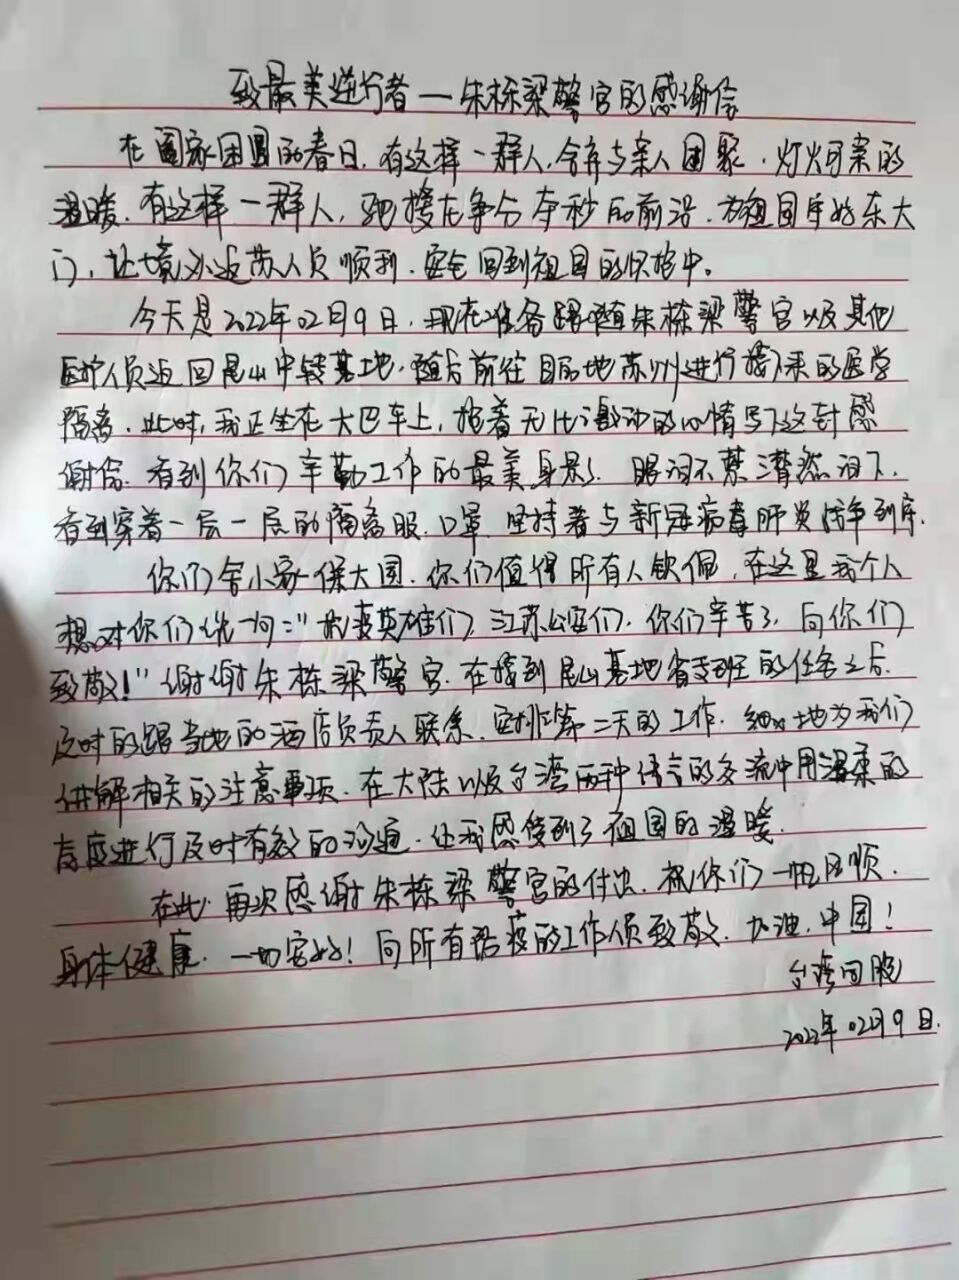 致最美逆行者—朱栋梁警官的感谢信
在阖家团圆的春日,有这样一群人,舍弃与亲人团聚,灯火可亲的
温暖,有这样一群人,驰援在争分夺秒的前沿,为祖国守好东大
门,让境外返苏人员顺利,安全回到祖国的怀抱中。
今天是2022年02月9日,现在准备跟随朱栋梁警官以及其他
医护人员返回昆山中转基地,随后前往目的地苏州进行接下来的医学
隔离,此时,我正坐在大巴车上,抱着无比激动的心情写下这封感
谢信,看到你们辛勤工作的最美身影,眼泪不禁潸然泪下,
看到穿着一层一层的隔离服,口罩,坚持着与新冠病毒肺炎战争到底,
你们舍小家保大国,你们值得所有人钦佩,在这里我个人
想对你们说一句:"抗疫英雄们,江苏公安们,你们辛苦了,向你们
致敬!"谢谢朱栋梁警官,在接到昆山基地省专班的任务之后,
及时的跟当地的酒店负责人联系,安排第二天的工作,细心地为我们
讲解相关的注意事项,在大陆以及台湾两种语言的交流中用温柔的
态度进行及时有效的沟通,让我感受到了祖国的温暖,
在此,再次感谢朱栋梁警官的付出,祝你们一帆风顺,
身体健康,一切安好!向所有防疫的工作人员致敬,加油,中国!
台湾同胞
2022年02月9日.